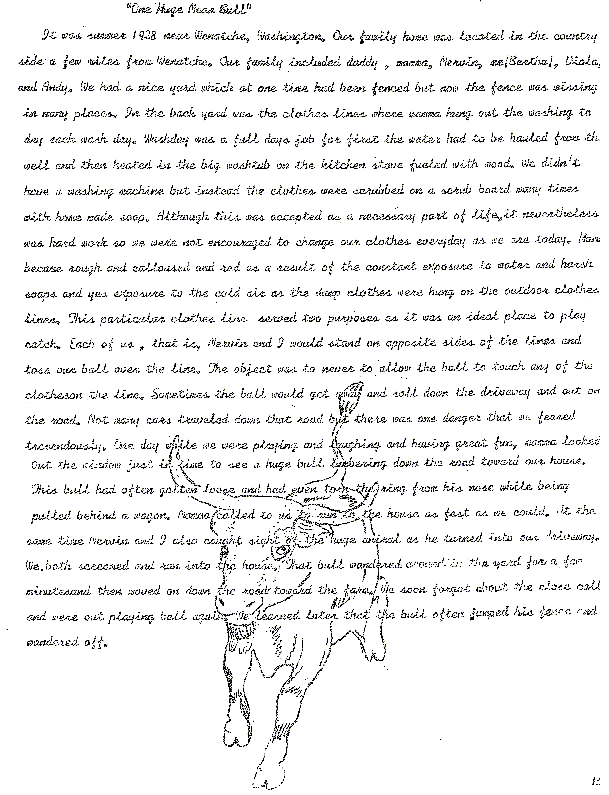 "One Huge Mean Bull"
It was summer 1928 near Wenatche, Washington. Our family home was located in the country
side a few miles from Wenatche. Our family included daddy, mamma, Merwin, me(Bertha), Viola,
and Andy. We had a nice yard which at one time had been fenced but now the fence was missing
in many places. In the back yard was the clothes lines where mamma hung out the washing to
dry each wash day. Washday was a full days job for first the water had to be hauled from th
well and then heated in the big washtub on the kitchen stove fueled with wood. We didn't
have a washing machine but instead the clothes were scrubbed on a scrub board many times
with home made soap. Although this was accepted as a necessary part of life, it nevertheless
was hard work so we were not encouraged to change our clothes everyday as we are today. Hans
became rough and calloused and red as a result of the constant exposure to water and harsh
soaps and yes exposure to the cold air as the damp clothes were hung on the outdoor clothes
lines. This particular clothes line served two purposes as it was an ideal place to play
catch. Each of us, that is, Merwin and I would stand on opposite sides of the lines and
toss our ball over the line. The object was to never to allow the ball to touch any of the
clotheson the line. Sometimes the ball would got away and roll down the driveway and out on
the road. Not many cars traveled down that road but there was one danger that we feared
tremendously. One day while we were playing and laughing and having great fun, mamma looked
out the window just in time to see a huge bull lumbering down the road toward our house.
This bull had often gotten loose and had even torn the ring from his nose while being
pulled behind a wagon. Mamma called to us to run to the house as fast as we could. At the
same time Merwin and I also caught sight of the huge animal as he turned into our driveway.
We both screamed and ran into the house. That bull wandered around in the yard for a few
minutesand then moved on down the road toward the farm. We soon forgot about the close call
and were out playing ball again. We learned later that the bull often jumped his fence and
wandered off.